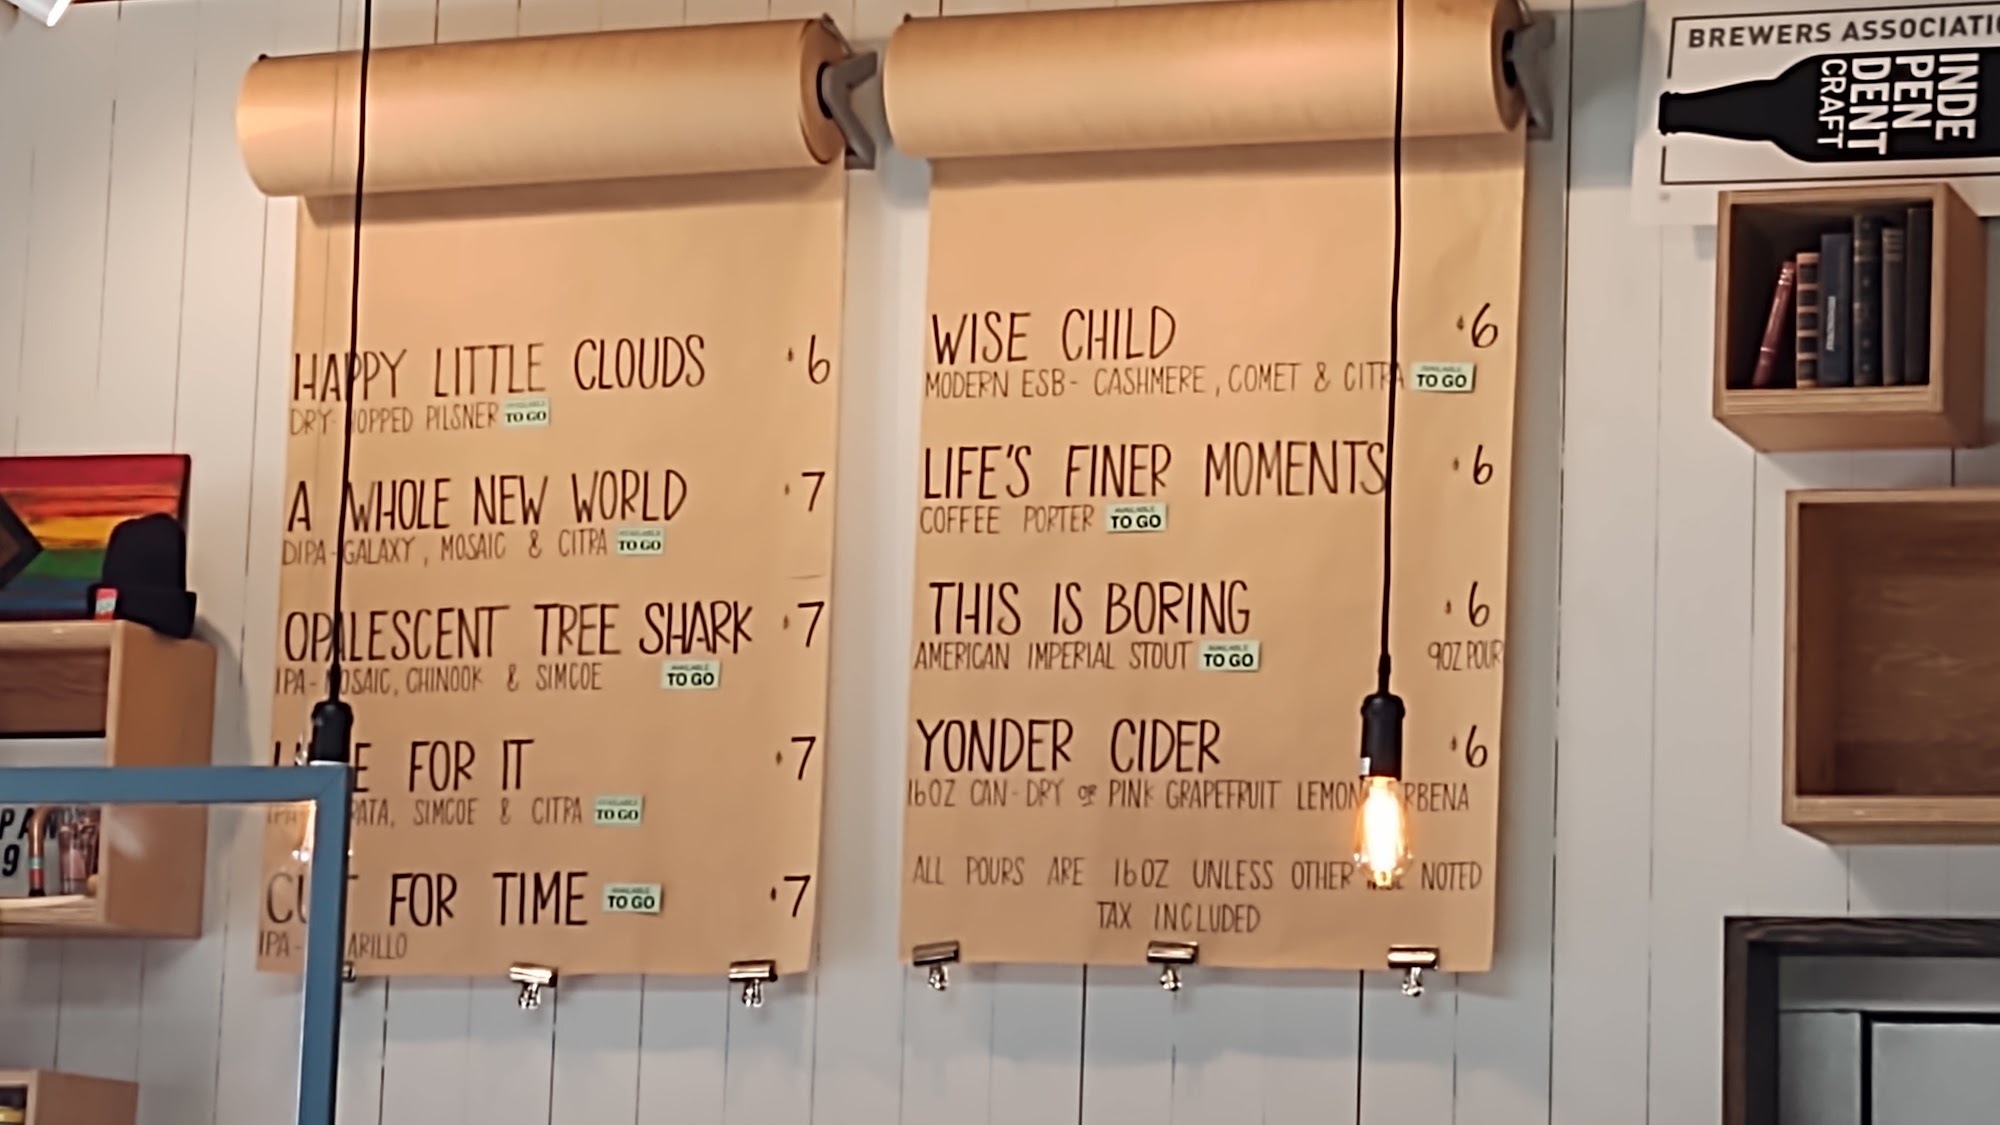 HAPPY LITTLE CLOUDS $6
DRY-HOPPED PILSNER AVAILABLE TO GO
A WHOLE NEW WORLD $7
DIPA-GALAXY, MOSAIC & CITRA AVAILABLE TO GO
OPALESCENT TREE SHARK $7
IPA-MOSAIC, CHINOOK & SIMCOE AVAILABLE TO GO
FOR IT $7
SIMCOE & CITRA AVAILABLE TO GO
CUT FOR TIME AVAILABLE TO GO $7
IPA-
WISE CHILD $6
MODERN ESB- CASHMERE, COMET & CITRA AVAILABLE TO GO
LIFE'S FINER MOMENTS $6
COFFEE PORTER AVAILABLE TO GO
THIS IS BORING $6
AMERICAN IMPERIAL STOUT AVAILABLE TO GO 9OZ POUR
YONDER CIDER $6
16OZ CAN-DRY OR PINK GRAPEFRUIT LEMON VERBENA
ALL POURS ARE 16OZ UNLESS OTHERWISE NOTED
TAX INCLUDED
BREWERS ASSOCIATIO
INDE
PEN
DENT
CRAFT